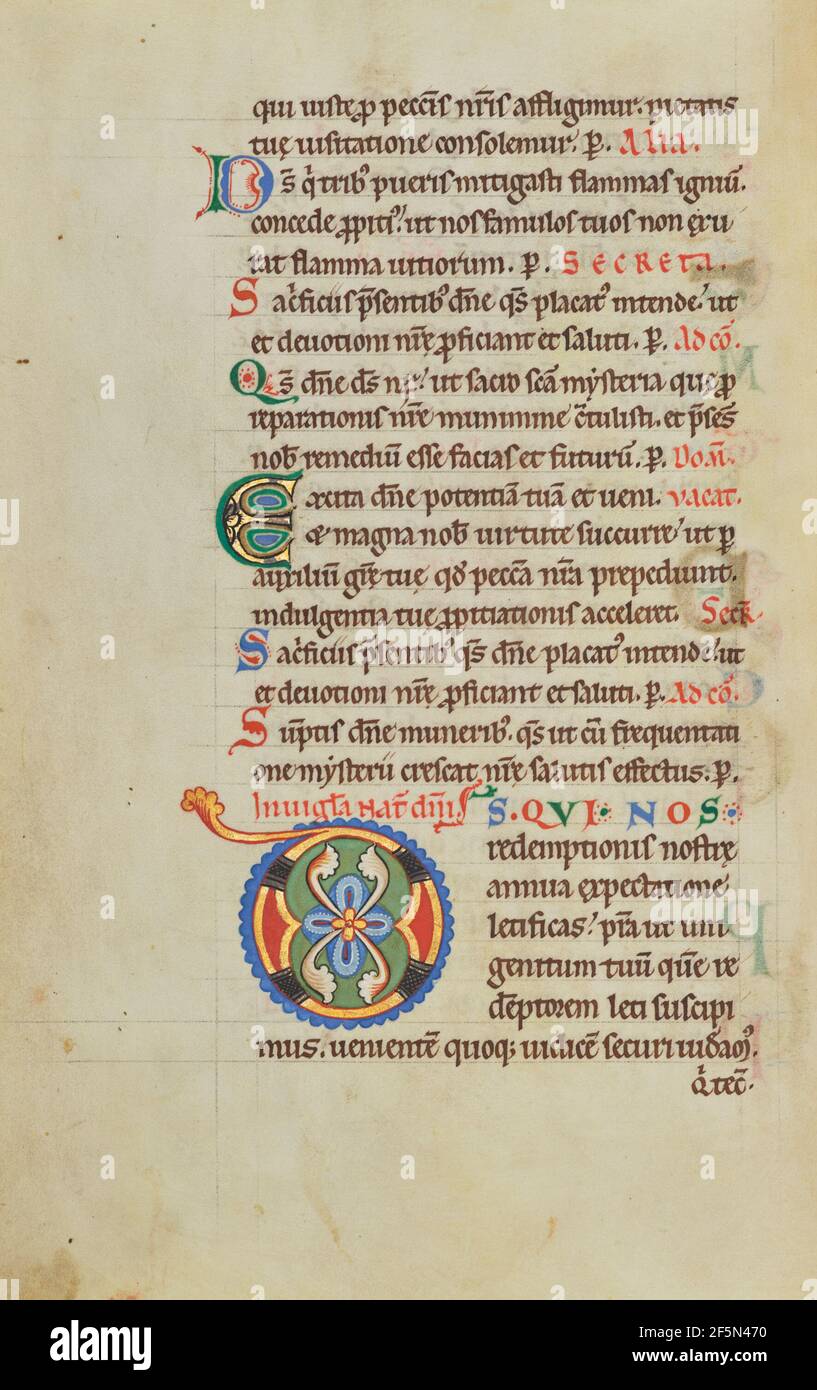 qui iuste ꝑ pecc̄is nr̄is affligimur. pietatis
tuę uisitatione consolemur. P. Alia.
Ds̄ q̇ trib᷒ pueris mitigasti flammas igniū.
concede ꝓpiti᷒. ut nos famulos tuos non exu
rat flamma uitiorum. P. Secreta.
Sac̍ficiis p̄sentib᷒ dn̄e qs̄ placat᷒ intende. ut
et deuotioni nr̄ę ꝓficiant et saluti. P. Ad cō.
Qs̄ dn̄e ds̄ nr̄. ut sacro sc̄a mysteria que ꝓ
reparationis nr̄e munimine c̄tulisti. et p̄sēs
nob̄ remediū esse facias et futurū. P. Dom̄.
Excita dn̄e potentiā tuā et ueni. vacat.
& magna nob̄ uirtute succurre. ut ꝑ
auxiliū gr̄ę tuę. qd̄ pecc̄a nr̄a prepediunt.
indulgentia tue ꝓpitiationis acceleret. Secr̄
Sac̍ficiis p̄sentib᷒ qs̄ dn̄e placat᷒ intende. ut
et deuotioni nr̄ę ꝓficiant et saluti. P. Ad cō.
Sūptis dn̄e munerib᷒. qs̄ ut cū frequentati
one mysterii crescat nr̄ę salutis effectus. P.
In uigl̄a nat̄ dn̄i.
DS. QVI NOS
redemptionis nostrę
annua expectatione
letificas. pr̄a ut uni
genitum tuū quē re
dēptorem leti suscipi
mus. uenientē quoq; iudicē securi uideam᷒.
Q̇ tec̄.
alamy
Image ID: 2F5N470
www.alamy.com